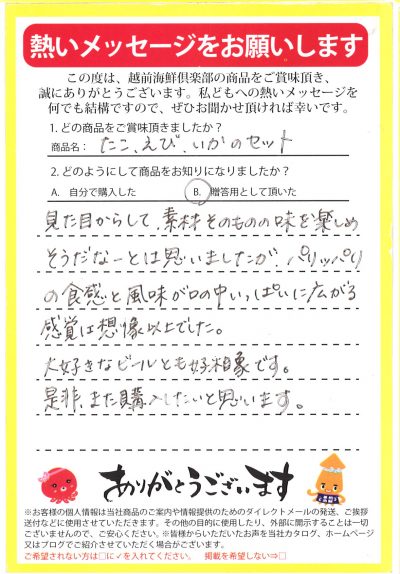 熱いメッセージをお願いします
この度は、越前海鮮倶楽部の商品をご賞味頂き、
誠にありがとうございます。私どもへの熱いメッセージを
何でも結構ですので、ぜひお聞かせ頂ければ幸いです。
1. どの商品をご賞味頂きましたか？
商品名： たこ、えび、いかのセット
2. どのようにして商品をお知りになりましたか？
A. 自分で購入した B. 贈答用として頂いた
見た目からして、素材そのものの味を楽しめ
そうだなーとは思いましたが、パリッパリ
の食感と風味が口の中いっぱいに広がる
感覚は想像以上でした。
大好きなビールとも好相象です。
是非、また購入したいと思います。
ありがとうございます
※お客様の個人情報は当社商品のご案内や情報提供のためのダイレクトメールの発送、ご挨拶
送付などに使用させていただきます。その他の目的に使用したり、外部に開示することは一切
ございませんので、ご安心ください。※皆様からいただいたお声を当社カタログ、ホームページ
又はブログでご紹介させていただく場合がございます。
ご希望されない方は□に✓を入れてください。 掲載を希望しない⇒□